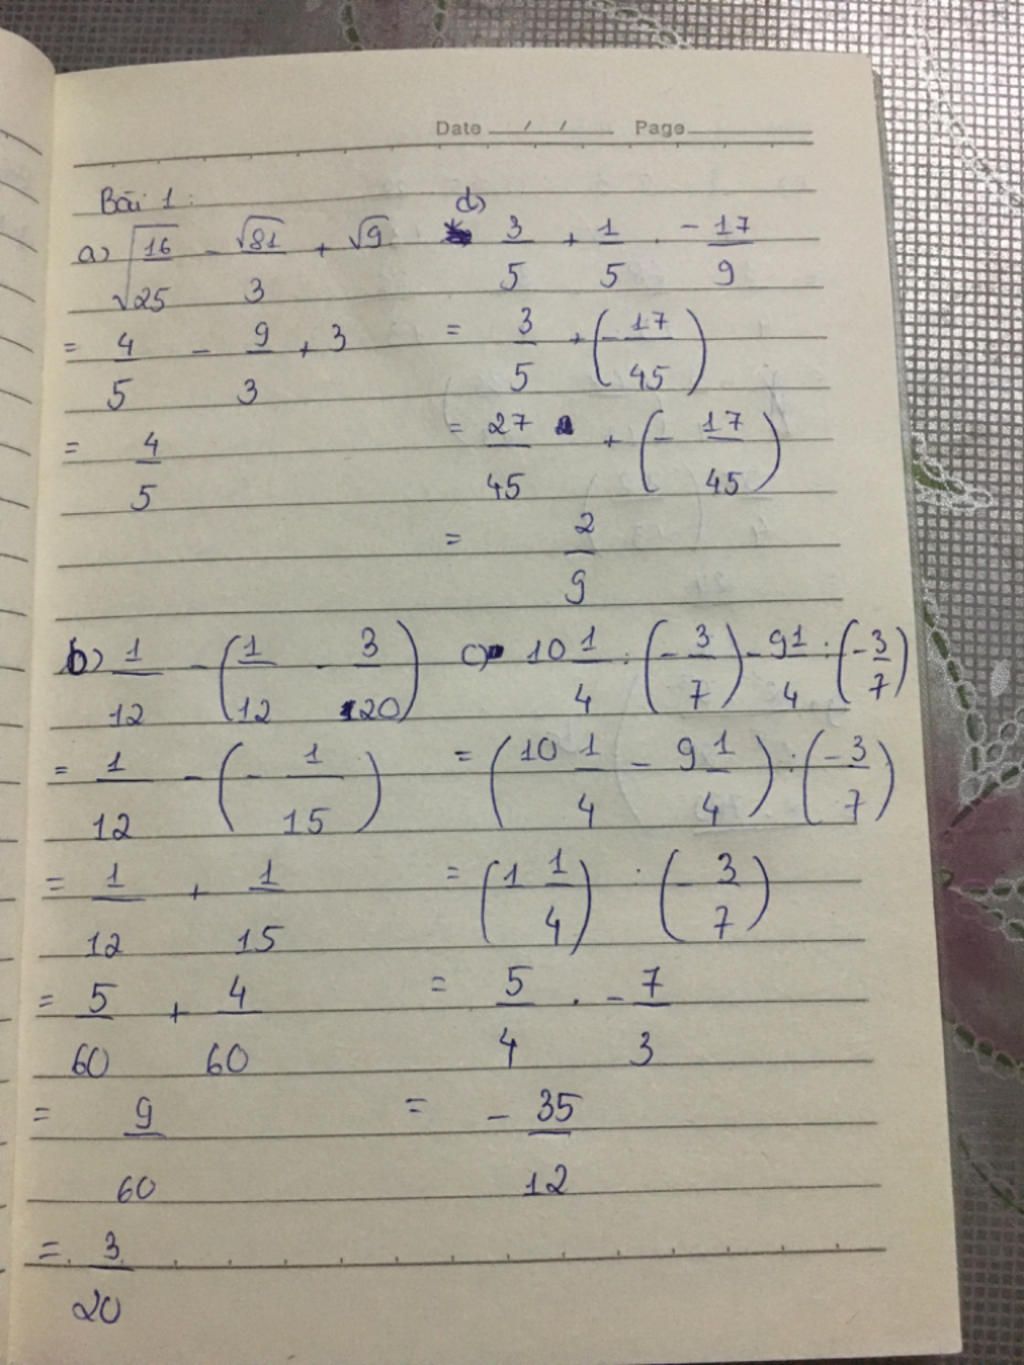 Date / / Page
Bài 1:
a) √16/√25 - √81/3 + √9
= 4/5 - 9/3 + 3
= 4/5
d) 3/5 + 1/5 . -17/9
= 3/5 + (-17/45)
= 27/45 + (-17/45)
= 2/9
b) 1/12 - (1/12 - 3/20)
= 1/12 - (-1/15)
= 1/12 + 1/15
= 5/60 + 4/60
= 9/60
= 3/20
c) 10 1/4 : (-3/7) - 9 1/4 : (-3/7)
= (10 1/4 - 9 1/4) : (-3/7)
= (1 1/4) : (-3/7)
= 5/4 . -7/3
= -35/12